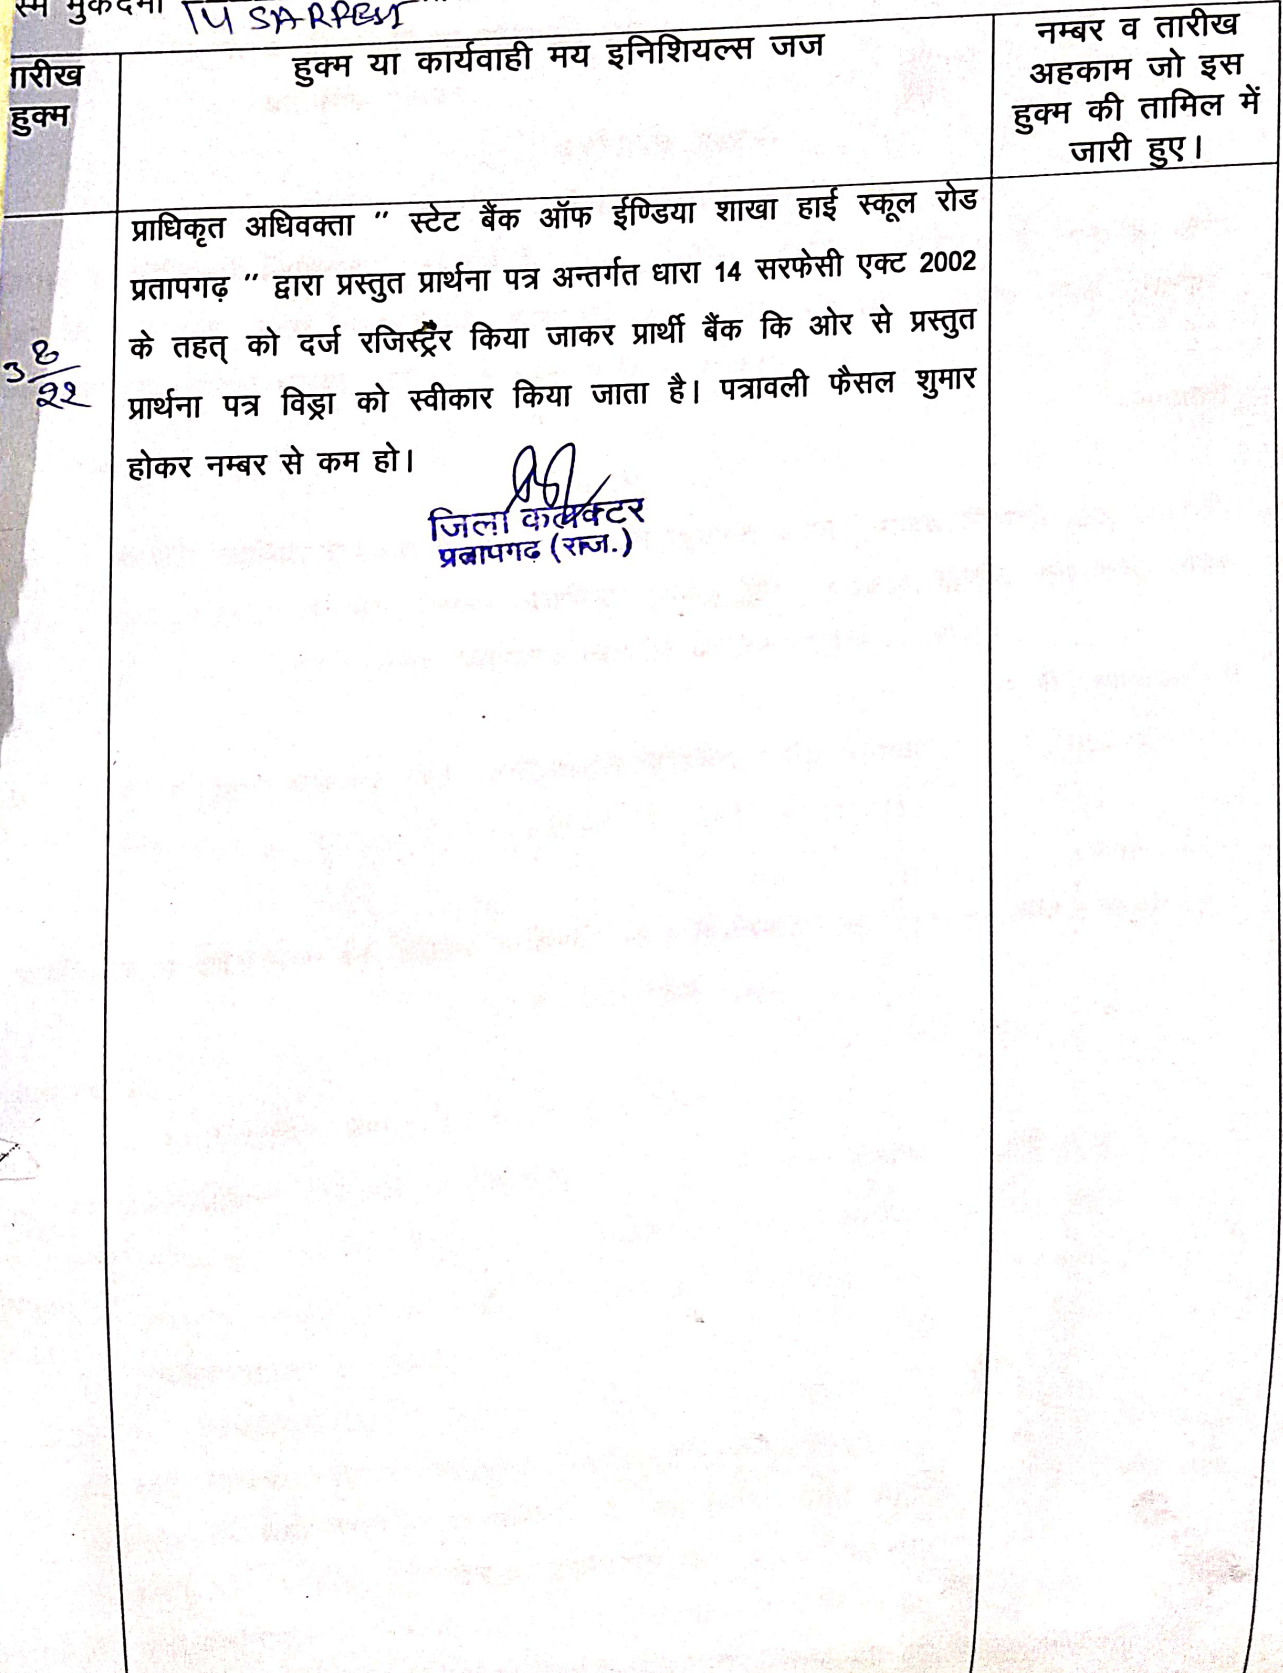 स्म मुकदमा 14 SARFESI
तारीख
हुक्म
हुक्म या कार्यवाही मय इनिशियल्स जज
नम्बर व तारीख
अहकाम जो इस
हुक्म की तामिल में
जारी हुए।
3 8/22
प्राधिकृत अधिवक्ता " स्टेट बैंक ऑफ ईण्डिया शाखा हाई स्कूल रोड
प्रतापगढ़ " द्वारा प्रस्तुत प्रार्थना पत्र अन्तर्गत धारा 14 सरफेसी एक्ट 2002
के तहत् को दर्ज रजिस्ट्रैर किया जाकर प्रार्थी बैंक कि ओर से प्रस्तुत
प्रार्थना पत्र विड्रा को स्वीकार किया जाता है। पत्रावली फैसल शुमार
होकर नम्बर से कम हो।
जिला कलक्टर
प्रतापगढ (राज.)